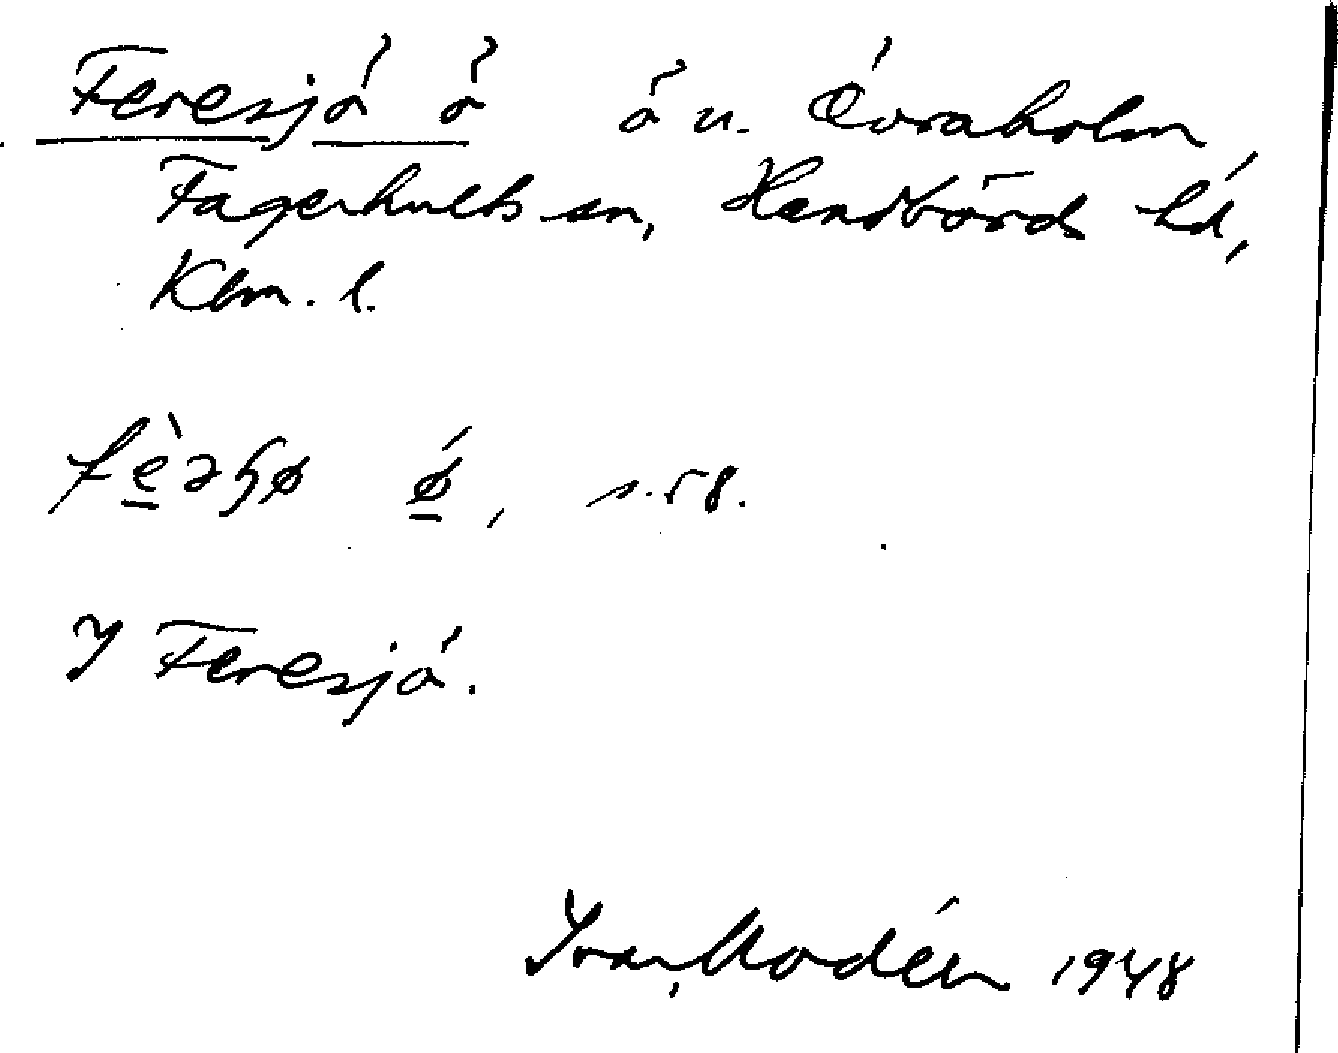 Feresjö ö ö u. Övraholm,
Fagerhults sn, Handbörds hd,
Klm. l.
fèꞫɧø ǿ, s. 58.
I Feresjö.
Ivar Modéer 1948